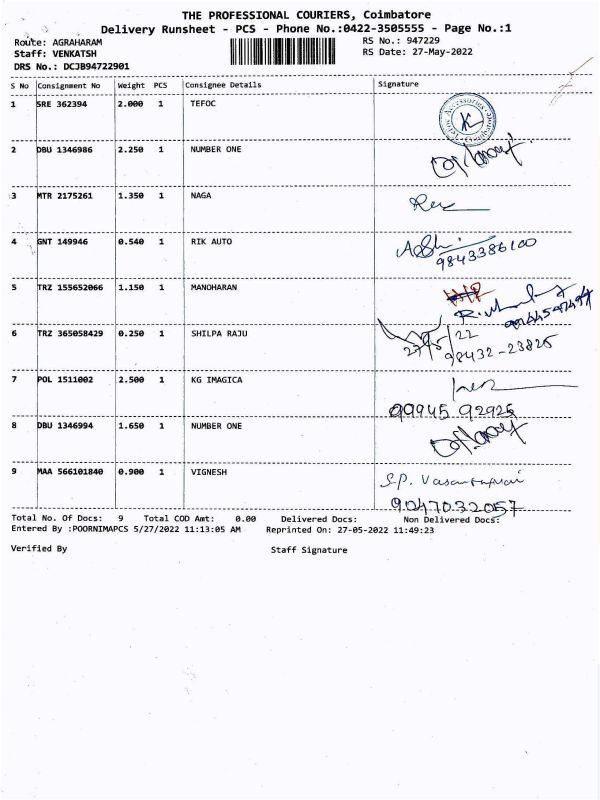 THE PROFESSIONAL COURIERS, Coimbatore
Delivery Runsheet - PCS - Phone No.:0422-3505555 - Page No.:1
Route: AGRAHARAM RS No.: 947229
Staff: VENKATSH RS Date: 27-May-2022
DRS No.: DCJB94722901
S No Consignment No Weight PCS Consignee Details Signature
1 SRE 362394 2.000 1 TEFOC
2 DBU 1346986 2.250 1 NUMBER ONE
3 MTR 2175261 1.350 1 NAGA
4 GNT 149946 0.540 1 RIK AUTO
9843386100
5 TRZ 155652066 1.150 1 MANOHARAN
6 TRZ 365058429 0.250 1 SHILPA RAJU
27/5/22
98432-23825
7 POL 1511002 2.500 1 KG IMAGICA
99945 92925
8 DBU 1346994 1.650 1 NUMBER ONE
9 MAA 566101840 0.900 1 VIGNESH
S.P.
9047032057
Total No. Of Docs: 9 Total COD Amt: 0.00 Delivered Docs: Non Delivered Docs:
Entered By :POORNIMAPCS 5/27/2022 11:13:05 AM Reprinted On: 27-05-2022 11:49:23
Verified By Staff Signature